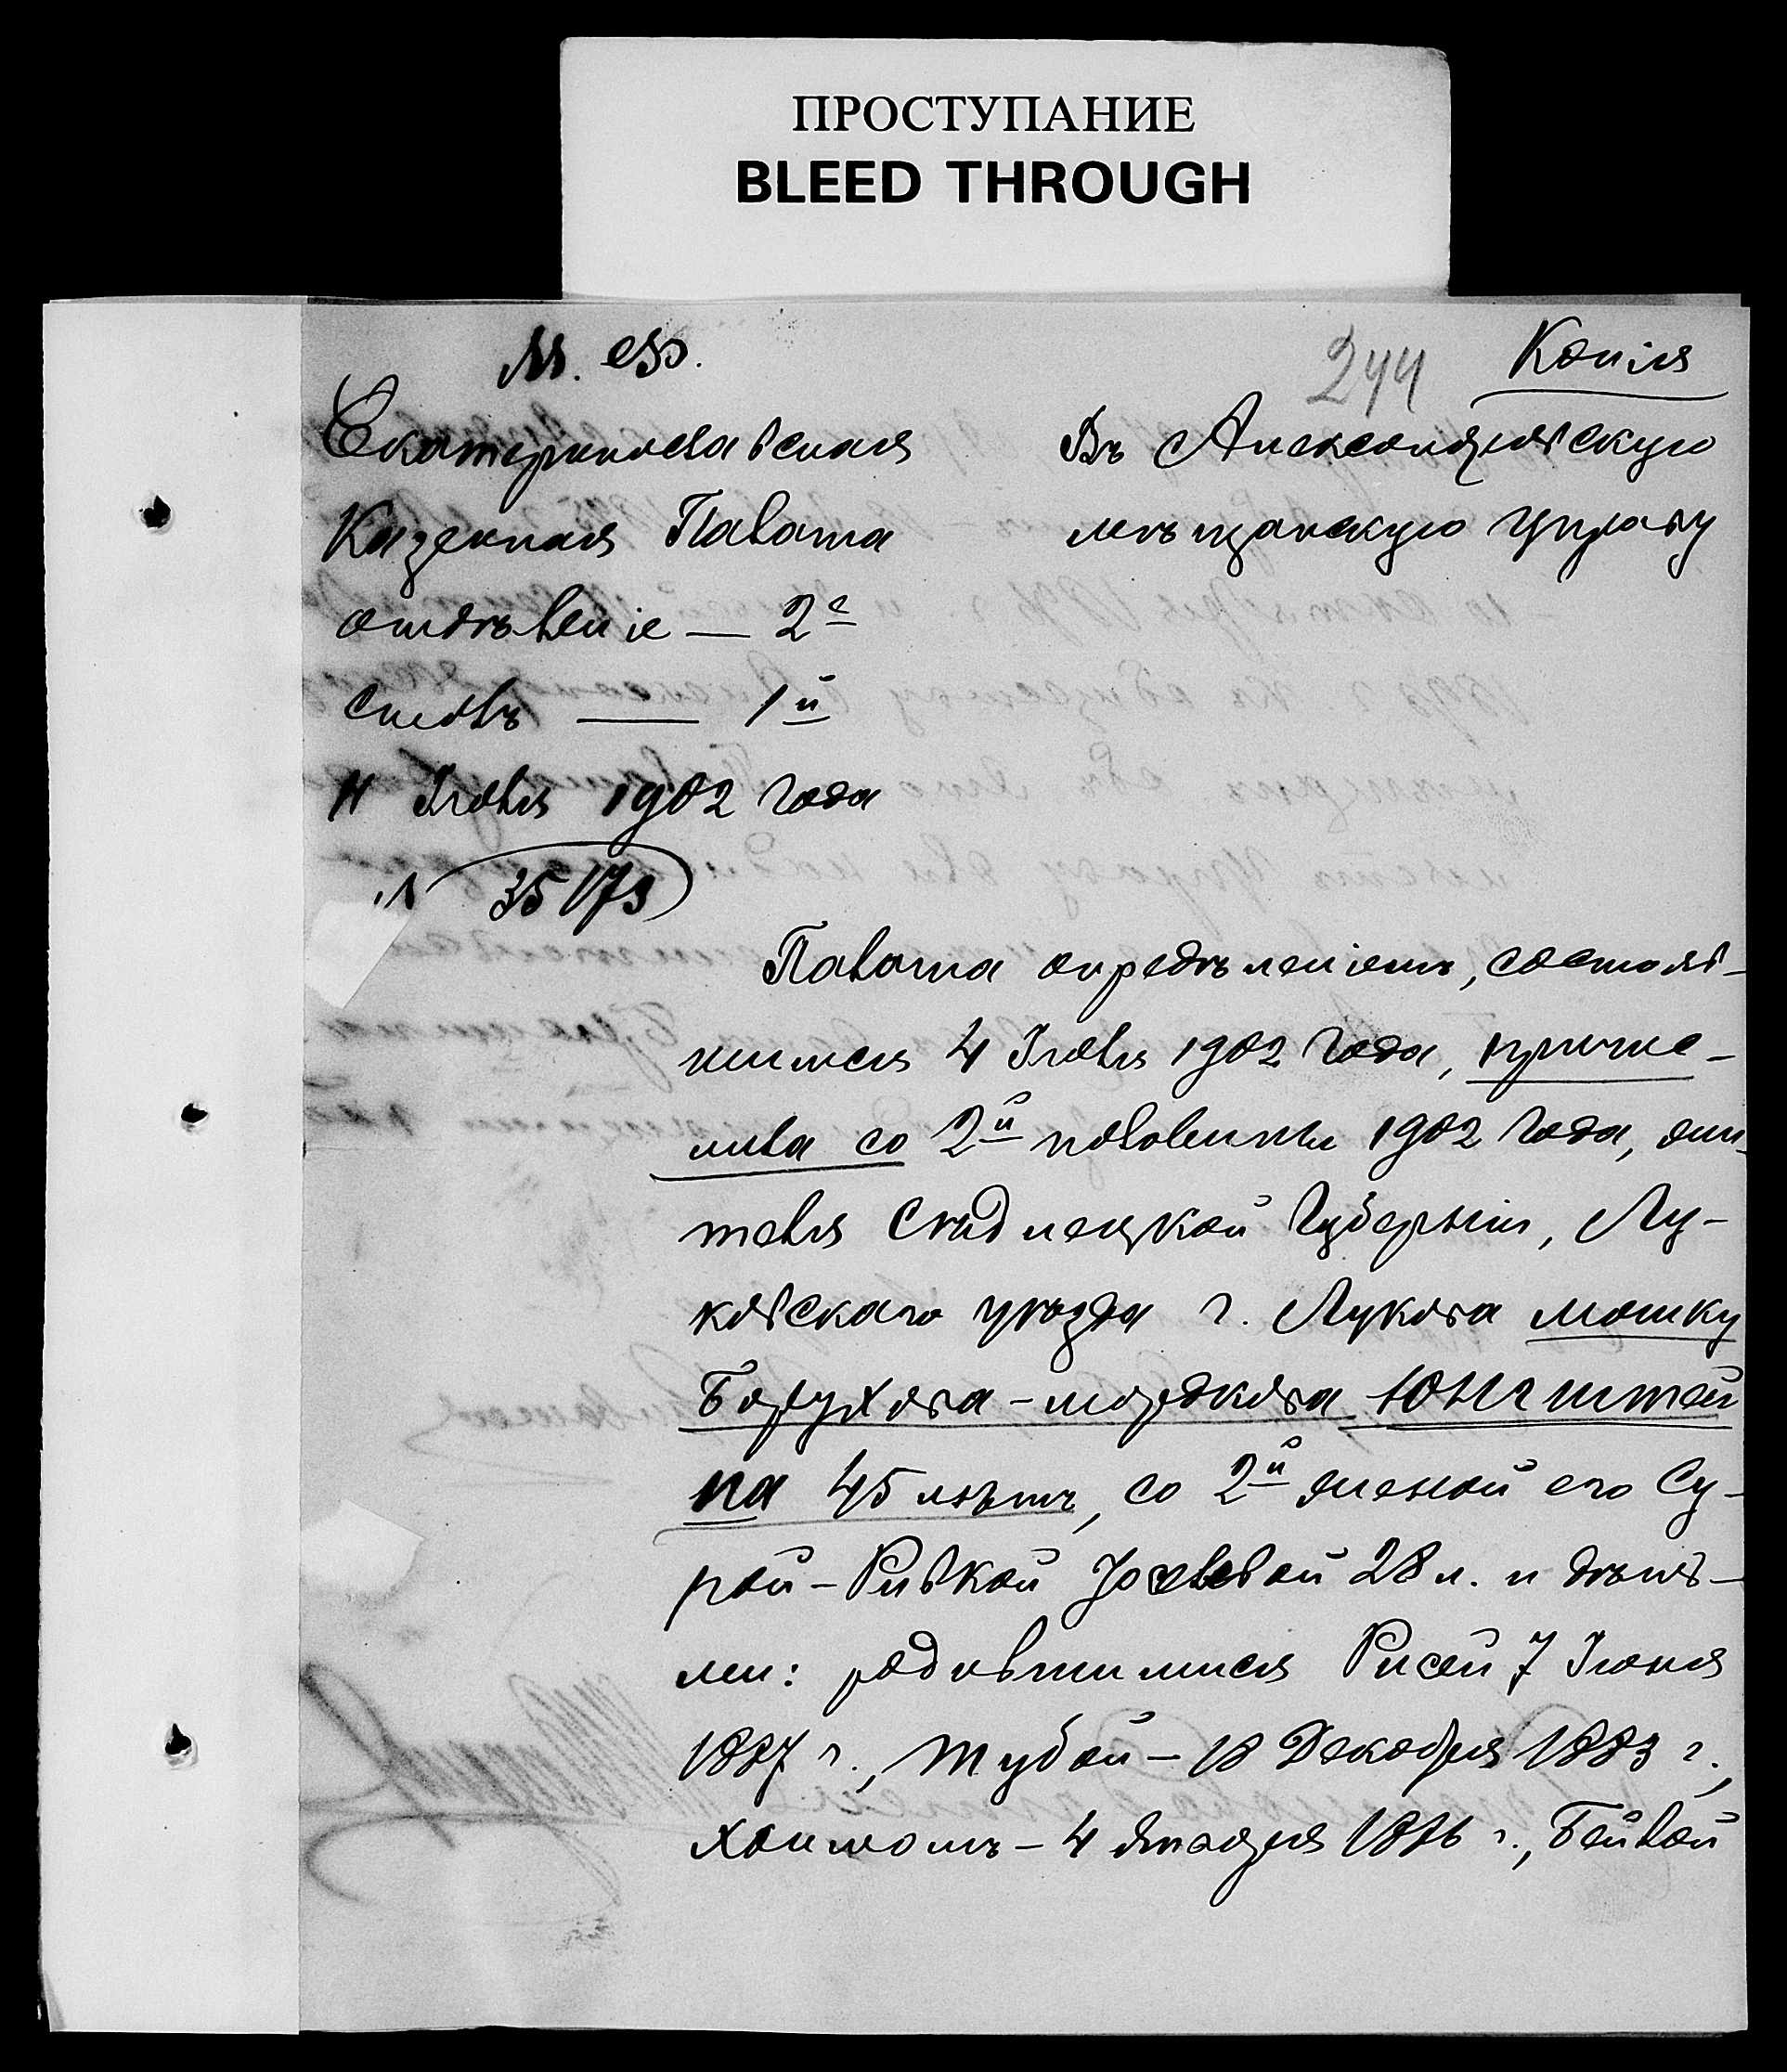 ПРОСТУПАНИЕ
BLEED THROUGH
М. ф.
244
Копія
Екатеринославская
Казенная Палата
отдѣленіе — 2е
столъ — 1й
11 Іюля 1902 года
№ 35173
Въ Александровскую
мѣщанскую Управу
Палата опредѣленіемъ, состояв-
шимся 4 Іюля 1902 года, причис-
лила со 2й половины 1902 года, жи-
теля Сѣдлецкой Губерніи, Лу-
ковскаго уѣзда г. Лукова Мошку
Борухова-Мордкова Юнгштей
на 45 лѣтъ, со 2й женой его Су-
рой-Ривкой Іоселевой 28 л. и дѣть-
ми: родившимися Рисей 7 Іюня
1887 г., Тубой — 18 Декабря 1883 г.,
Хаимомъ — 4 Января 1876 г., Бейлой